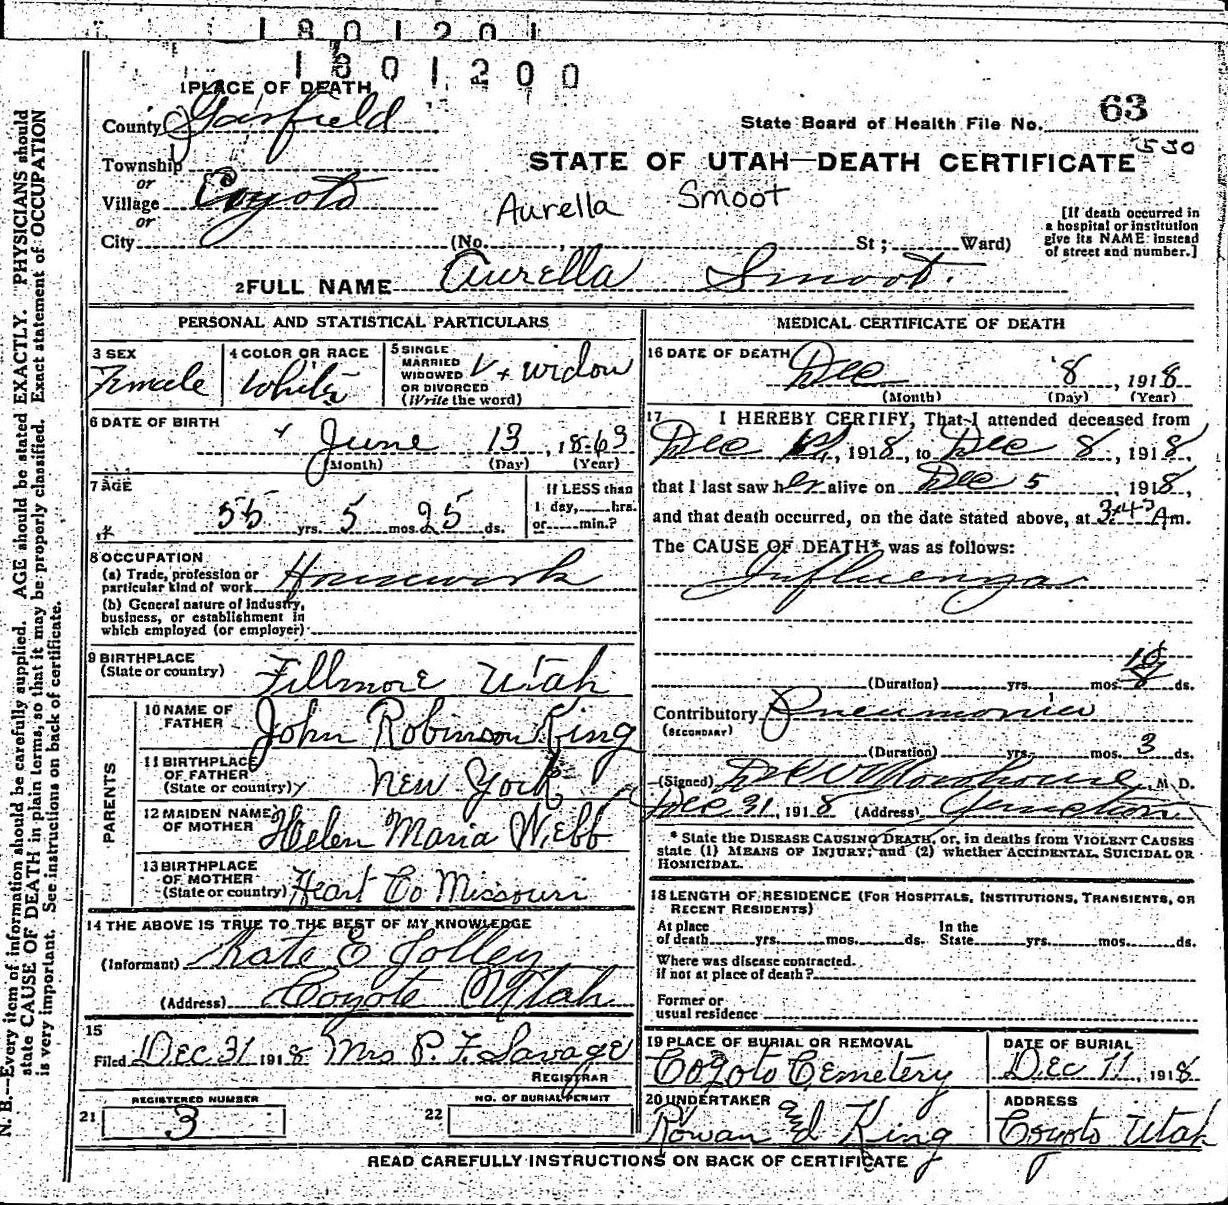 1801201
1801200
1 PLACE OF DEATH
County Garfield
State Board of Health File No. 63
530
Township
or
STATE OF UTAH—DEATH CERTIFICATE
Village Coyoto
or
Aurella Smoot
City (No. , St; Ward)
[If death occurred in
a hospital or institution
give its NAME instead
of street and number.]
2 FULL NAME Aurella Smoot.
PERSONAL AND STATISTICAL PARTICULARS
3 SEX
Female
4 COLOR OR RACE
White
5 SINGLE
MARRIED
WIDOWED
OR DIVORCED
(Write the word)
widow
6 DATE OF BIRTH
June 13, 1863
(Month) (Day) (Year)
7 AGE
55 yrs. 5 mos. 25 ds.
If LESS than
1 day, hrs.
or min.?
8 OCCUPATION
(a) Trade, profession or
particular kind of work Housework
(b) General nature of industry,
business, or establishment in
which employed (or employer)
9 BIRTHPLACE
(State or country) Fillmore Utah
PARENTS
10 NAME OF
FATHER John Robinson King
11 BIRTHPLACE
OF FATHER
(State or country) New York
12 MAIDEN NAME
OF MOTHER Helen Maria Webb
13 BIRTHPLACE
OF MOTHER
(State or country) Heart Co Missouri
14 THE ABOVE IS TRUE TO THE BEST OF MY KNOWLEDGE
(Informant) Kate E Jolley
(Address) Coyote Utah
15
Filed Dec 31 1918 Mrs P. F. Savage
REGISTRAR
REGISTERED NUMBER
21 3
NO. OF BURIAL PERMIT
22
MEDICAL CERTIFICATE OF DEATH
16 DATE OF DEATH
Dec 8, 1918
(Month) (Day) (Year)
17 I HEREBY CERTIFY, That I attended deceased from
Dec 1st, 1918, to Dec 8, 1918,
that I last saw her alive on Dec 5 1918,
and that death occurred, on the date stated above, at 3:45 Am.
The CAUSE OF DEATH* was as follows:
Influenza
(Duration) yrs. mos. 8 ds.
Contributory Pneumonia
(SECONDARY)
(Duration) yrs. mos. 3 ds.
(Signed) M. D.
Dec 31, 1918 (Address)
* State the DISEASE CAUSING DEATH, or, in deaths from VIOLENT CAUSES
state (1) MEANS OF INJURY; and (2) whether ACCIDENTAL, SUICIDAL OR
HOMICIDAL.
18 LENGTH OF RESIDENCE (FOR HOSPITALS, INSTITUTIONS, TRANSIENTS, OR
RECENT RESIDENTS)
At place
of death yrs. mos. ds.
In the
State yrs. mos. ds.
Where was disease contracted.
if not at place of death?
Former or
usual residence
19 PLACE OF BURIAL OR REMOVAL
Coyoto Cemetery
DATE OF BURIAL
Dec 11, 1918
20 UNDERTAKER
Rowan and King
ADDRESS
Coyoto Utah
READ CAREFULLY INSTRUCTIONS ON BACK OF CERTIFICATE
N. B.—Every item of information should be carefully supplied. AGE should be stated EXACTLY. PHYSICIANS should
state CAUSE OF DEATH in plain terms, so that it may be properly classified. Exact statement of OCCUPATION
is very important. See instructions on back of certificate.